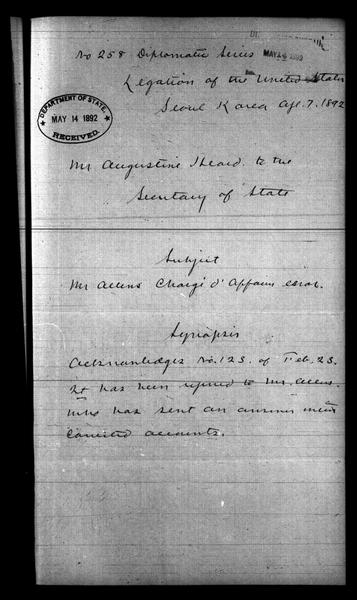 No 258 Diplomatic Series
Legation of the United States
Seoul Korea Apl. 7. 1892
DEPARTMENT OF STATE.
MAY 14 1892
RECEIVED.
Mr Augustine Heard to the
Secretary of State
Subject
Mr Allens Chargé d'Affaires error.
Synopsis
Acknowledges No. 123. of Feb. 23.
It has been referred to Mr. Allen.
who has sent an answer with
corrected accounts.